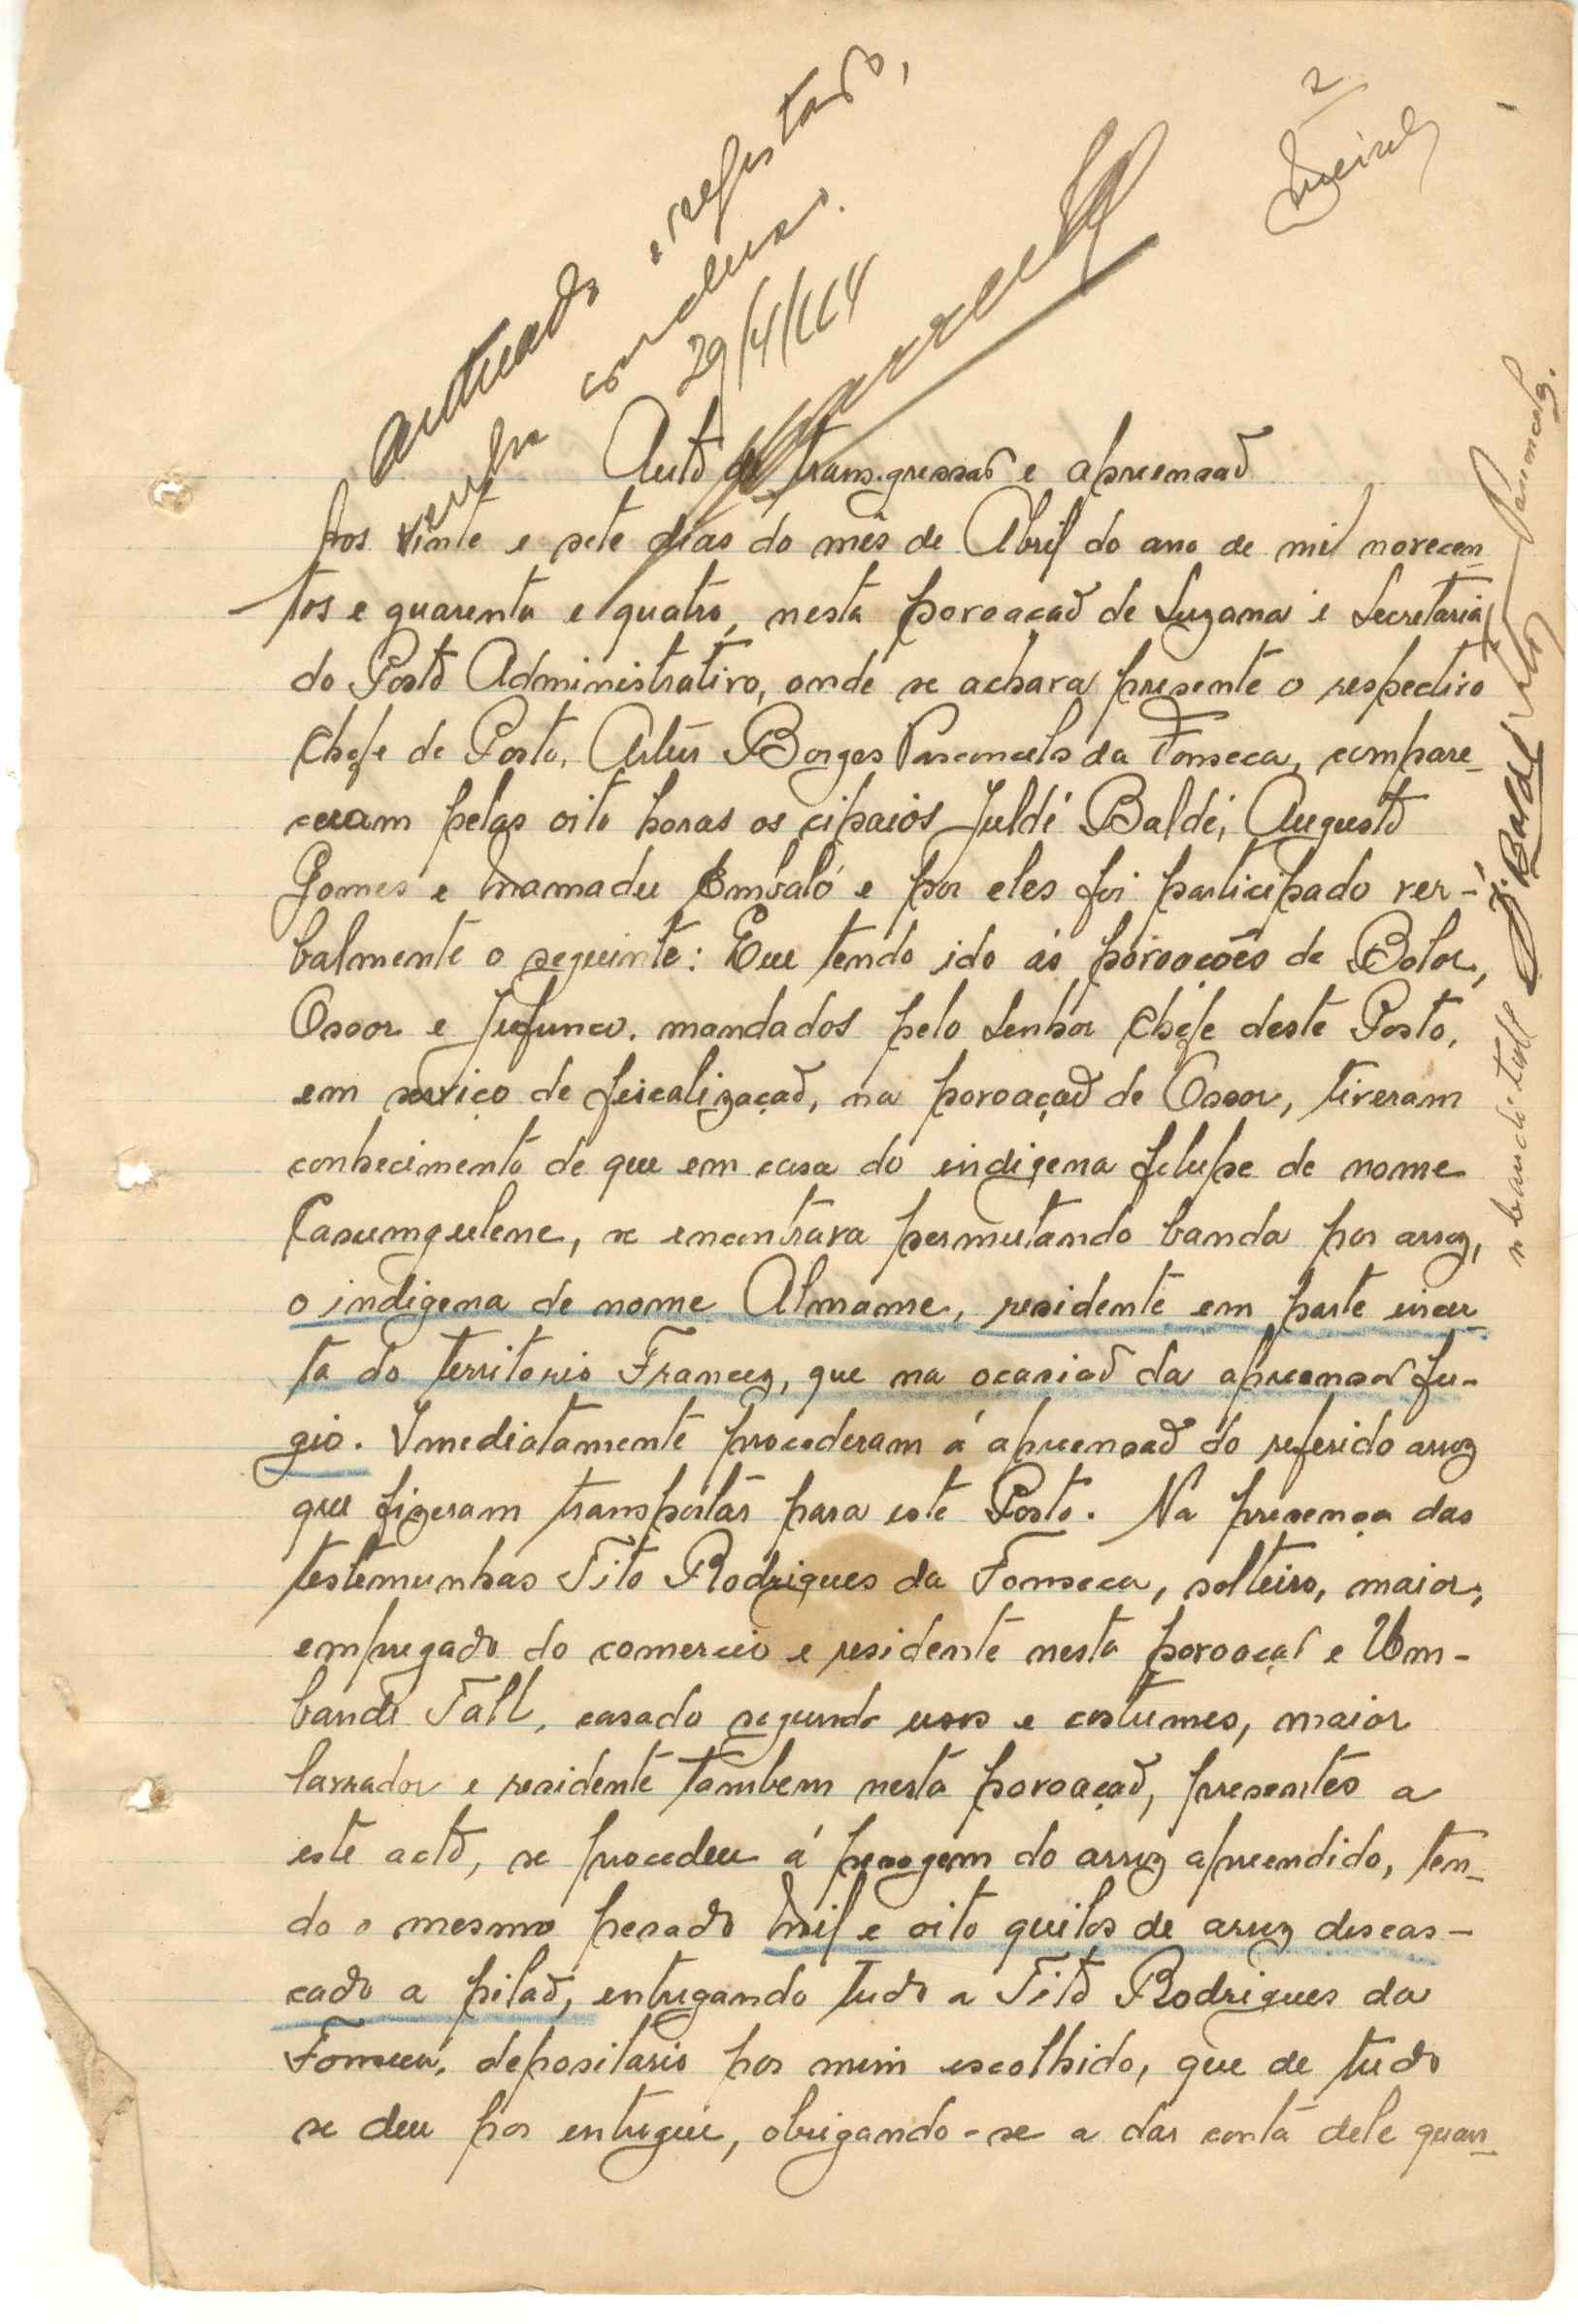 2
autuado e registado,
venha concluso.
29/4/944
Auto de transgressão e apreensão
Aos vinte e sete dias do mês de Abril do ano de mil novecen-
tos e quarenta e quatro, nesta povoação de Suzana e Secretaria
do Posto Administrativo, onde se achava presente o respectivo
Chefe de Posto, Artur Borges Vasconcelos da Fonseca, compare-
ceram pelas oito horas os cipaios Juldé Baldé, Augusto
Gomes e Mamadu Embaló e por eles foi participado ver-
balmente o seguinte: Que tendo ido ás povoações de Bolor,
Ossor e Jufunco, mandados pelo Senhor Chefe deste Posto,
em serviço de fiscalização, na povoação de Ossor, tiveram
conhecimento de que em casa do indigena felupe de nome
Casumgulene, se encontrava permutando banda por arroz,
o indigena de nome Almame, residente em parte incer-
ta do territorio Francez, que na ocasião da apreensão fu-
gio. Imediatamente procederam á apreensão do referido arroz
que fizeram transportar para este Posto. Na presença das
testemunhas Tito Rodrigues da Fonseca, solteiro, maior,
empregado do comercio e residente nesta povoação e Um-
bandi Tall, casado segundo usos e costumes, maior
lavrador e residente tambem nesta povoação, presentes a
este acto, se procedeu á pesagem do arroz apreendido, ten-
do o mesmo pesado mil e oito quilos de arroz descas-
cado a pilão, entregando tudo a Tito Rodrigues da
Fonseca, depositario por mim escolhido, que de tudo
se deu por entregue, obrigando-se a dar conta dele quan-